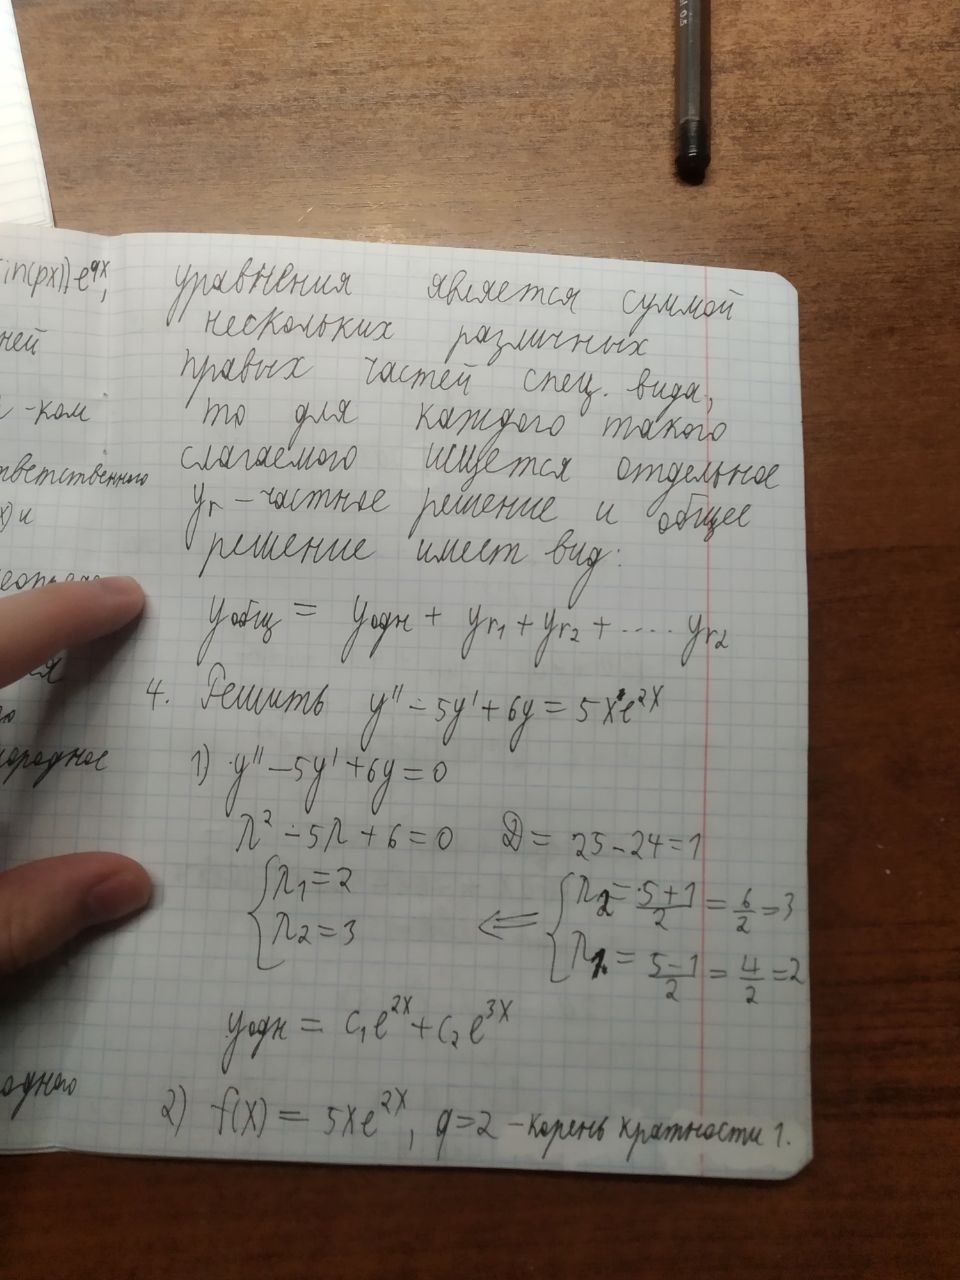 in(px)) e^qx,
ней
-ком
тветственного
х) и
ородное
одного
уравнения является суммой
нескольких различных
правых частей спец. вида,
то для каждого такого
слагаемого ищется отдельное
yr – частное решение и общее
решение имеет вид:
yобщ = yодн + yr1 + yr2 + .... yr2
4. Решить y'' – 5y' + 6y = 5xe^2x
1) y'' – 5y' + 6y = 0
λ² – 5λ + 6 = 0 D = 25 – 24 = 1
{ λ1 = 2 ⇐ { λ2 = (5+1)/2 = 6/2 = 3
λ2 = 3 λ1 = (5–1)/2 = 4/2 = 2
yодн = c1e^2x + c2e^3x
2) f(x) = 5xe^2x, q = 2 – корень кратности 1.